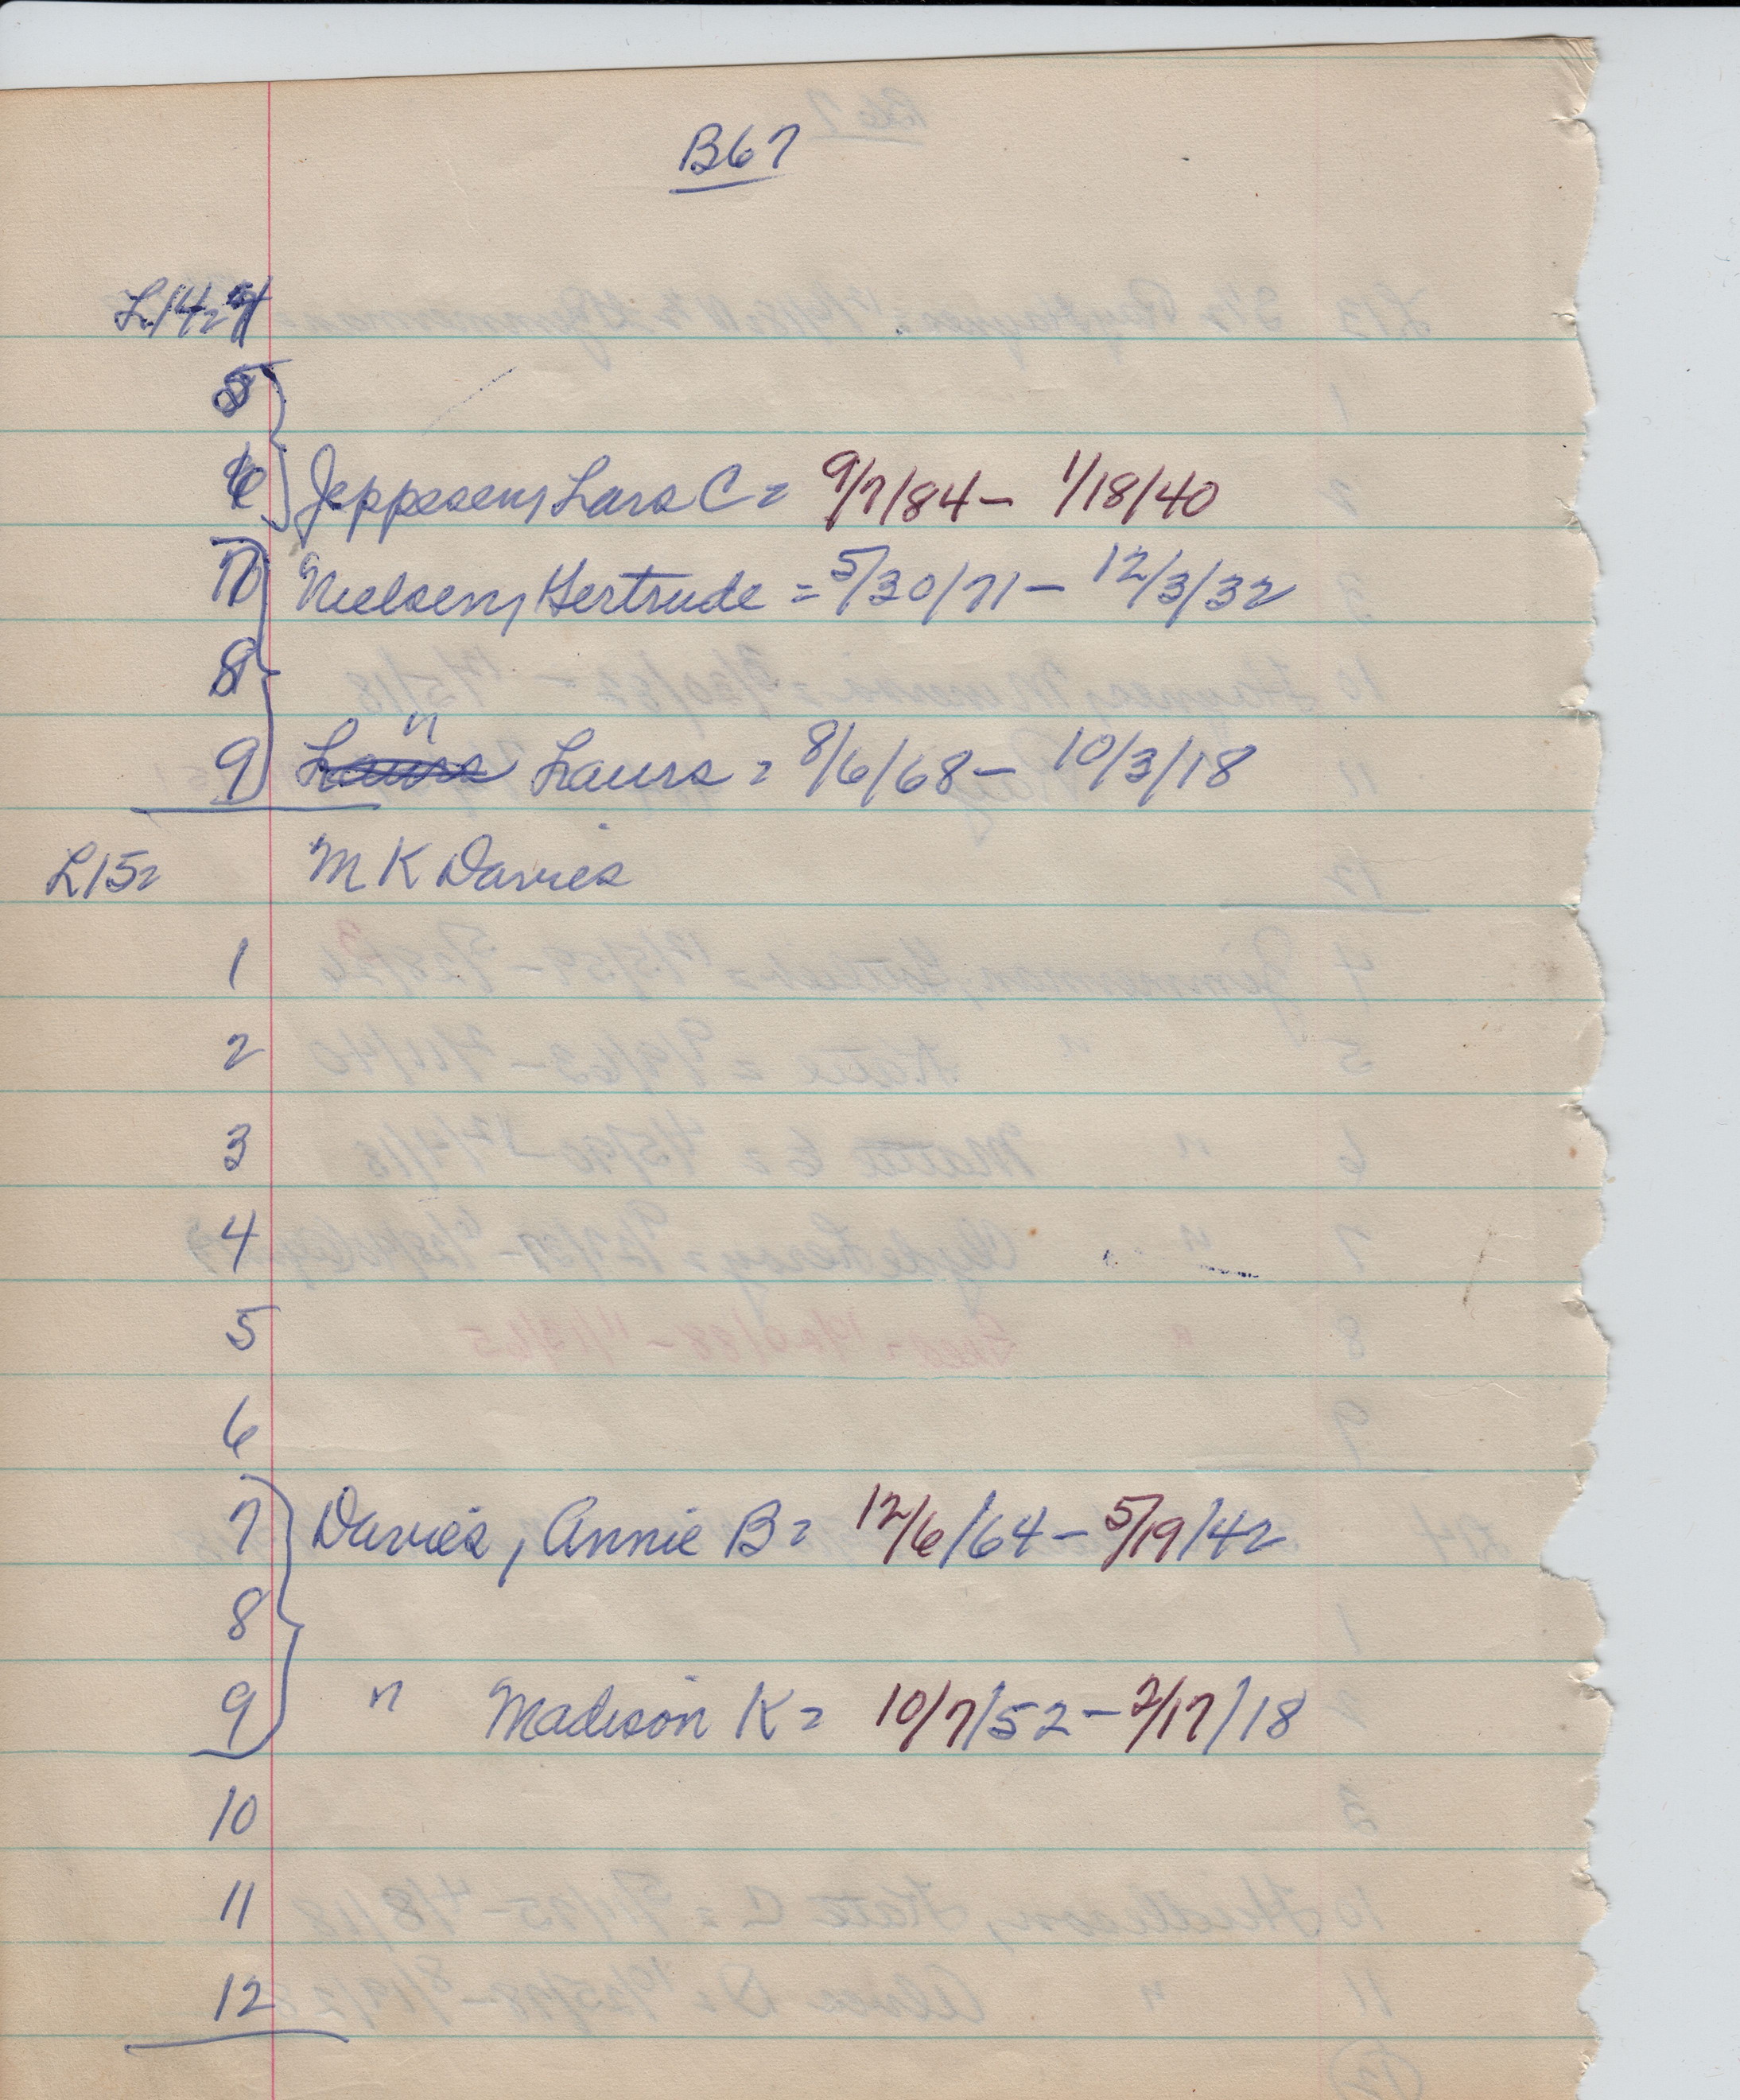 B67
L14=4
5
6 Jeppesen, Lars C= 9/7/84- 1/18/40
7 Nielsen, Gertrude = 5/30/71- 12/3/32
8
9 " Laurs = 8/6/68- 10/3/18
L15= M K Davies
1
2
3
4
5
6
7 Davies, Annie B= 12/6/64-5/19/42
8
9 " Madison K= 10/7/52-2/17/18
10
11
12